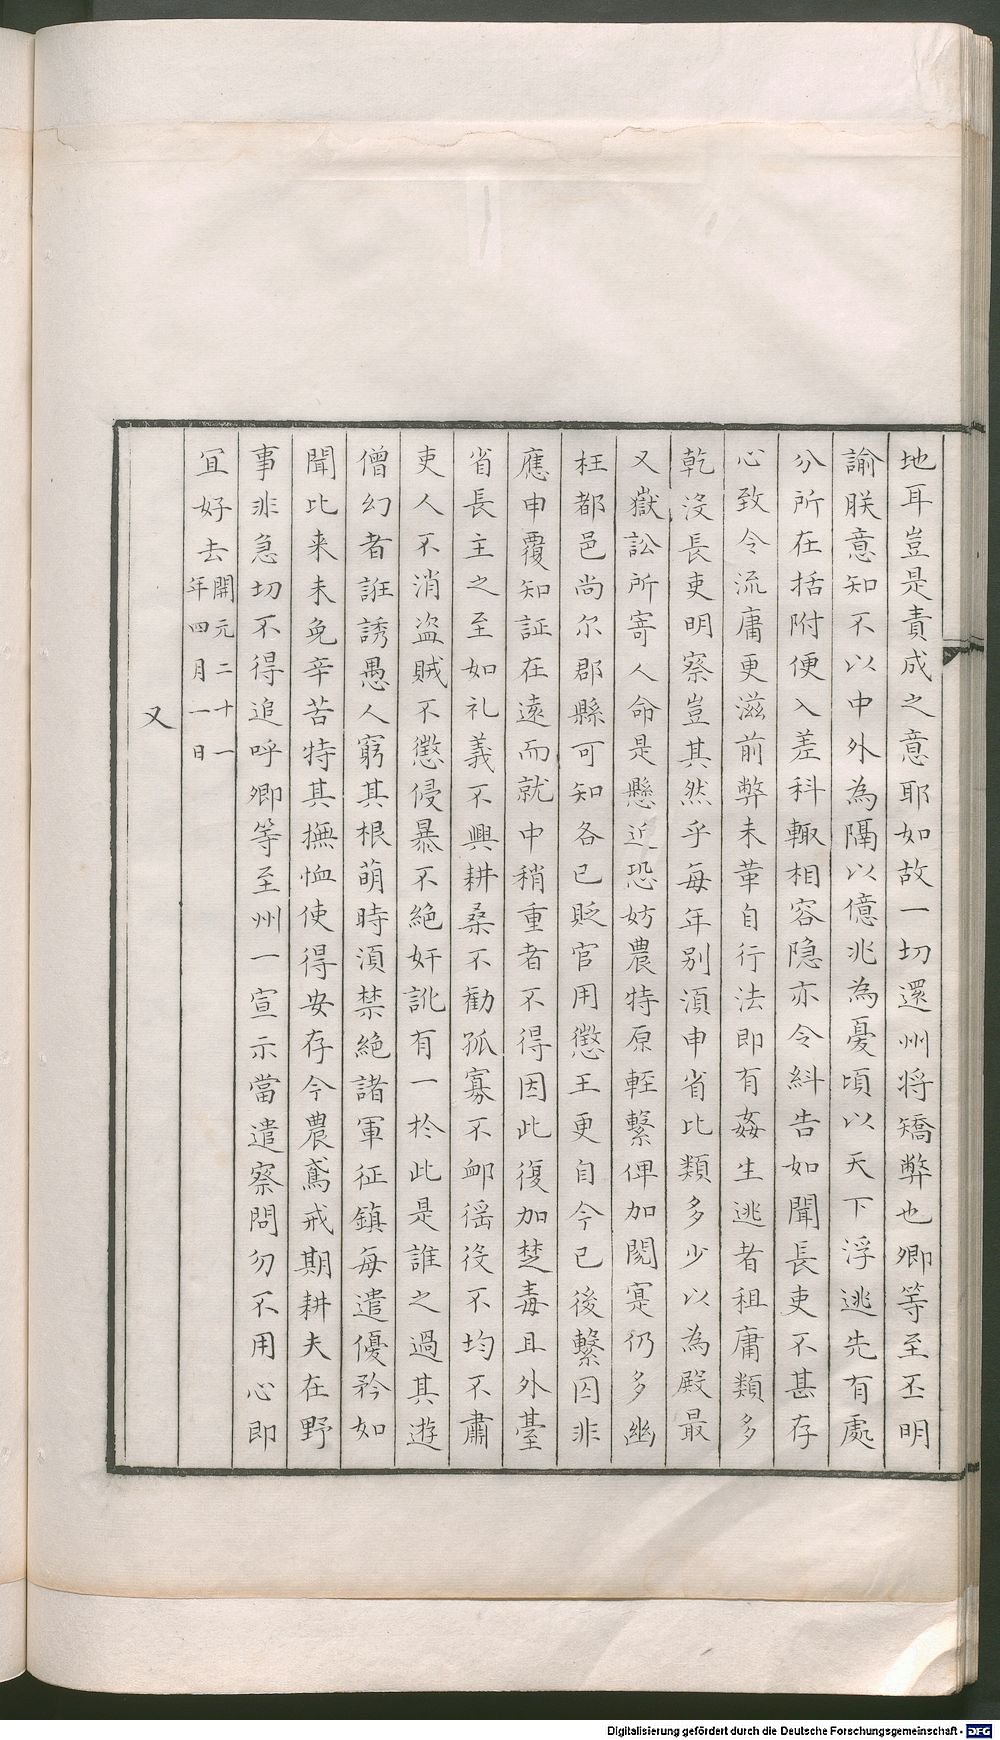 地耳豈是責成之意耶如故一切還州将矯弊也卿等至丕明
諭朕意知不以中外為隔以億兆為憂頃以天下浮逃先有處
分所在括附便入差科輙相容隐亦令糾告如聞長吏不甚存
心致令流庸更滋前弊未革自行法即有姦生逃者租庸類多
乾没長吏明察豈其然乎每年别湏申省比類多少以為殿最
又嶽訟所寄人命是懸近恐妨農特原輕繫俾加閱寔仍多幽
枉都邑尚尔郡縣可知各已貶官用懲王更自今已後繫囚非
應申覆知証在遠而就中稍重者不得因此復加楚毒且外臺
省長主之至如礼義不興耕桑不勸孤寡不卹徭役不均不肅
吏人不消盗賊不懲侵暴不絶奸訛有一扵此是誰之過其遊
僧幻者誑誘愚人窮其根萌時湏禁絶諸軍征鎮每遣優矜如
聞比来未免辛苦特其撫恤使得安存今農鳶戒期耕夫在野
事非急切不得追呼卿等至州一宣示當遣察問勿不用心即
宜好去開元二十一年四月一日
又
Digitalisierung gefördert durch die Deutsche Forschungsgemeinschaft - DFG